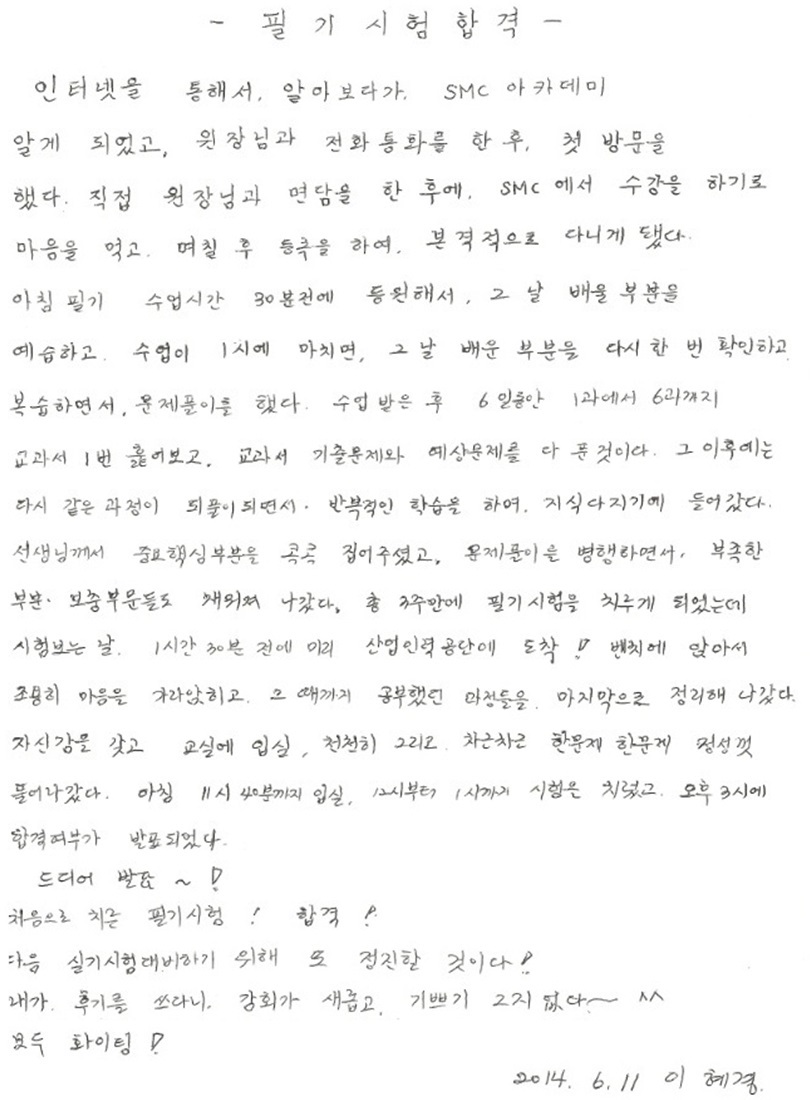 - 필기시험합격 -
인터넷을 통해서, 알아보다가, SMC 아카데미
알게 되었고, 원장님과 전화통화를 한 후, 첫 방문을
했다. 직접 원장님과 면담을 한 후에, SMC에서 수강을 하기로
마음을 먹고, 며칠 후 등록을 하여, 본격적으로 다니게 됐다.
아침 필기 수업시간 30분전에 등원해서, 그 날 배울 부분을
예습하고, 수업이 1시에 마치면, 그 날 배운 부분을 다시 한 번 확인하고
복습하면서, 문제풀이를 했다. 수업 받은 후 6일동안 1과에서 6과까지
교과서 1번 훑어보고, 교과서 기출문제와 예상문제를 다 푼것이다. 그 이후에는
다시 같은 과정이 되풀이되면서, 반복적인 학습을 하여, 지식다지기에 들어갔다.
선생님께서 중요핵심부분을 콕콕 집어주셨고, 문제풀이을 병행하면서, 부족한
부분, 보충부문들도 채워져 나갔다, 총 3주만에 필기시험을 치루게 되었는데
시험보는 날, 1시간 30분 전에 미리 산업인력공단에 도착! 벤치에 앉아서
조용히 마음을 가라앉히고, 그 때까지 공부했던 과정들을, 마지막으로 정리해 나갔다.
자신감을 갖고 교실에 입실, 천천히 그리고, 차근차근 한문제 한문제 정성껏
풀어나갔다. 아침 11시 40분까지 입실, 12시부터 1시까지 시험은 치렀고, 오후 3시에
합격여부가 발표되었다.
드디어 발표 ~ !
처음으로 치른 필기시험 ! 합격 !
다음 실기시험대비하기 위해 또 정진할 것이다!
내가, 후기를 쓰다니, 감회가 새롭고, 기쁘기 그지 없다~ ^^
모두 화이팅 !
2014. 6. 11 이 혜경.